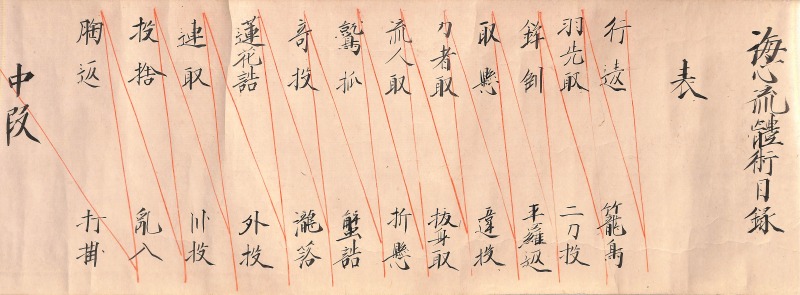 誨心流體術目録
表
行違 籠鳥
羽先取 二刀投
鉾倒 平羅返
取懸 違投
力者取 抜身取
流人取 折懸
鷲抓 蟹詰
奇投 瀧落
蓮花詰 外投
連取 川投
投捨 亂入
胸返 打掛
中段